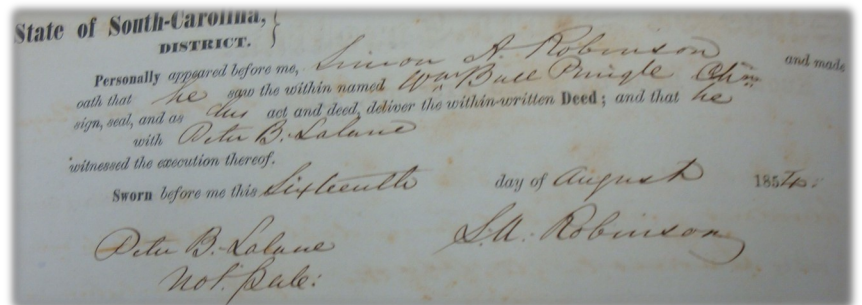 State of South-Carolina,
DISTRICT.
Personally appeared before me, Simon A. Robinson and made
oath that he saw the within named Wm Bull Pringle
sign, seal, and as his act and deed, deliver the within-written Deed; and that he
with Peter B. Lalane
witnessed the execution thereof.
Sworn before me this Sixteenth day of August 1854
Peter B. Lalane S. A. Robinson
Not. Pub: